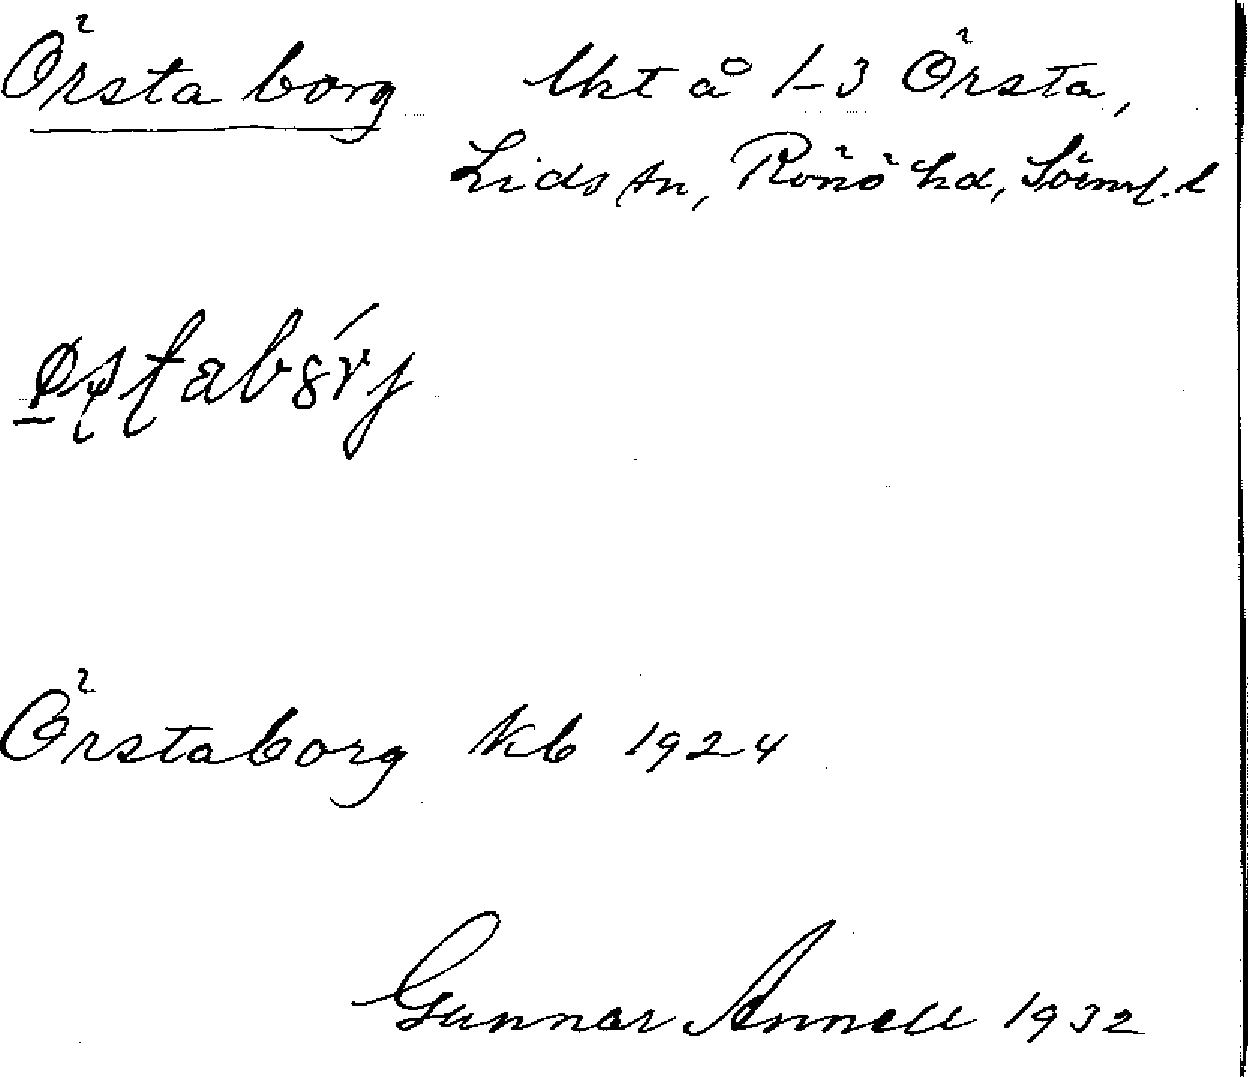 Örstaborg lht å 1-3 Örsta,
Lids sn, Rönö hd, Sörml. l
Örstaborg kb 1924
Gunnar Annell 1932